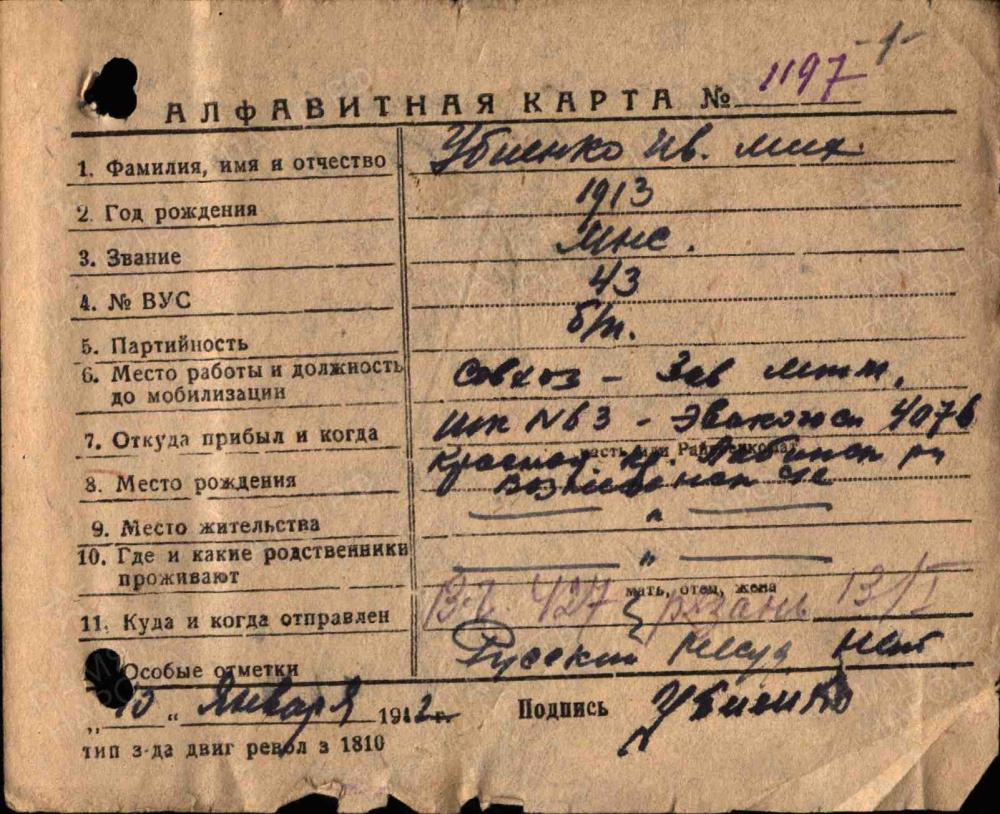 -1-
АЛФАВИТНАЯ КАРТА № 1197
1. Фамилия, имя и отчество Убиенко Ив. Мих.
2. Год рождения 1913
3. Звание мнс.
4. № ВУС 43
5. Партийность б/п.
6. Место работы и должность
до мобилизации совхоз - Зав мтм.
7. Откуда прибыл и когда № 63 -
часть или
Краснод. кр.
8. Место рождения
9. Место жительства — " —
10. Где и какие родственники
проживают — " —
мать, отец, жена
11. Куда и когда отправлен 427 Рязань 13/I
Особые отметки Русский нет
„10“ Января 1942 г. Подпись Убиенко
тип з-да двиг револ з 1810